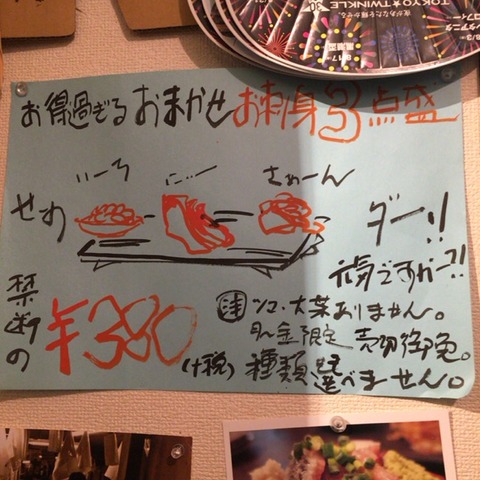 TOKYO★TWINKLE
お得過ぎるおまかせお刺身3点盛
せーの
いーち
にー
さぁーん
ダー!!
元気ですかー?!
禁断の
¥380
(+税)
注 ツマ・大葉ありません。
月〜金限定 売切御免。
種類も選べません。